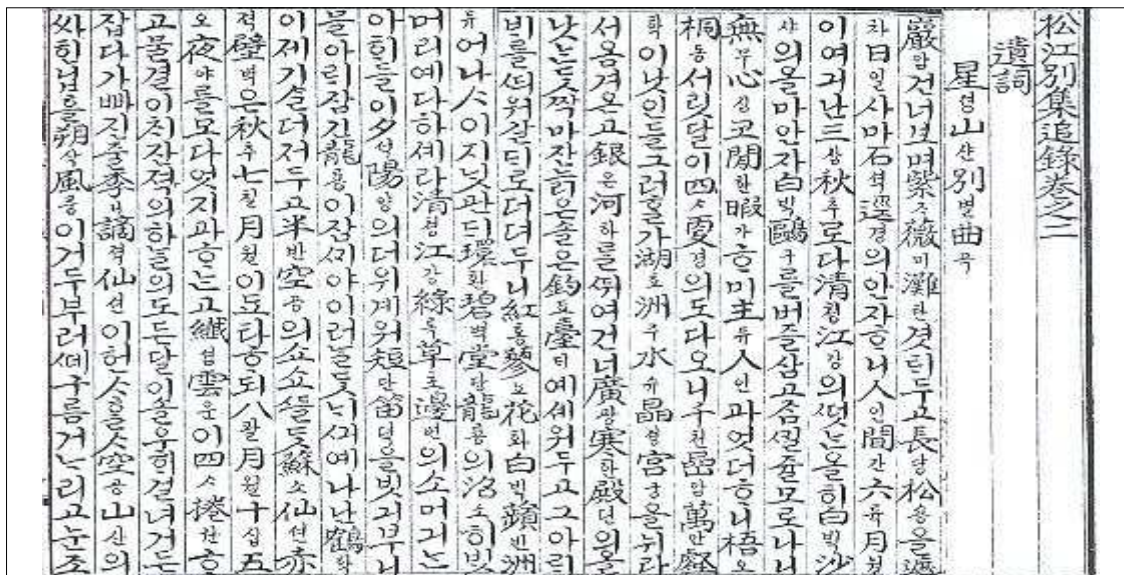 松江別集追錄卷之二
遺詞
星셩山산別별曲곡
巖암건너보며紫자薇미灘탄겻틔두고長댱松숑을遮
차日일사마石셕逕경의안자ᄒᆞ니人인間간六뉵月월
이여긔난三삼秋츄로다淸쳥江강의ᄯᅥᆺᄂᆞᆫ올히白ᄇᆡᆨ沙
샤의올마안자白ᄇᆡᆨ鷗구를버즐삼고ᄌᆞᆷᄭᆡᆯ쥴모로나니
無무心심코閒한暇가ᄒᆞ미主쥬人인과엇더ᄒᆞ니梧오
桐동서릿달이四ᄉᆞ更경의도다오니千쳔巖암萬만壑
학이낫인들그러ᄒᆞᆯ가湖호洲쥬水슈晶졍宮궁을뉘라
서옴겨온고銀은河하를ᄯᅱ여건너廣광寒한殿뎐의올
낫ᄂᆞᆫᄃᆞᆺᄶᅡᆨ마잔늙은솔은釣됴臺ᄃᆡ예셰워두고그아ᄅᆡ
ᄇᆡ를ᄯᅴ워갈ᄃᆡ로더뎌두니紅홍蓼뇨花화白ᄇᆡᆨ蘋빈洲
쥬어나ᄉᆞ이지낫관ᄃᆡ環환碧벽堂당龍뇽의沼소히ᄇᆡᆺ
머리예다하셰라淸쳥江강綠녹草초邊변의소머기ᄂᆞᆫ
아ᄒᆡ들이夕셕陽양의더위계워短단笛뎍을빗기부니
믈아ᄅᆡ잠긴龍뇽이ᄌᆞᆷᄭᆡ야이러날ᄃᆞᆺᄂᆡᄭᅴ예나난鶴학
이제기슬더져두고半반空공의소소ᄯᅳᆯᄃᆞᆺ蘇소仙션赤
젹壁벽은秋츄七칠月월이됴타ᄒᆞ되八팔月월十십五
오夜야를모다엇지과ᄒᆞᄂᆞᆫ고纖셤雲운이四ᄉᆞ捲권ᄒᆞ
고믈결이치잔적의하ᄂᆞᆯ의도든달이솔우ᄒᆡ걸녀거든
잡다가ᄲᅡ진줄李니謫젹仙션이헌ᄉᆞᄒᆞᆯᄉᆞ空공山산의
싸힌닙흘朔삭風풍이거두부러ᄯᅦ구름거ᄂᆞ리고눈조